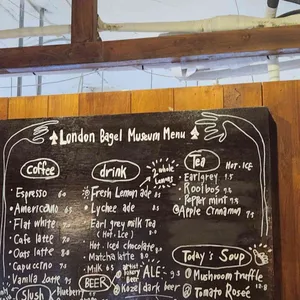 London Bagel Museum Menu
Coffee
Espresso 6.0
Americano 6.5
Flat white
Cafe latte
Oats latte 8.0
Capuccino
Vanilla latte
Slush
Blueberry
drink
Fresh Lemon ade 8.5
Lychee ade 8.5
Earl grey milk Tea
(Hot. Ice)
Hot. iced chocolate
Matcha latte
Milk 6.5
BEER
ALE
Kozel dark beer
2 whole Lemons
Tea
HOT. ICE
Earlgrey 7.5
Rooibos 7.5
Pepper mint 7.5
Apple Cinnamon
Today's Soup
Mushroom truffle
Tomato Roseé